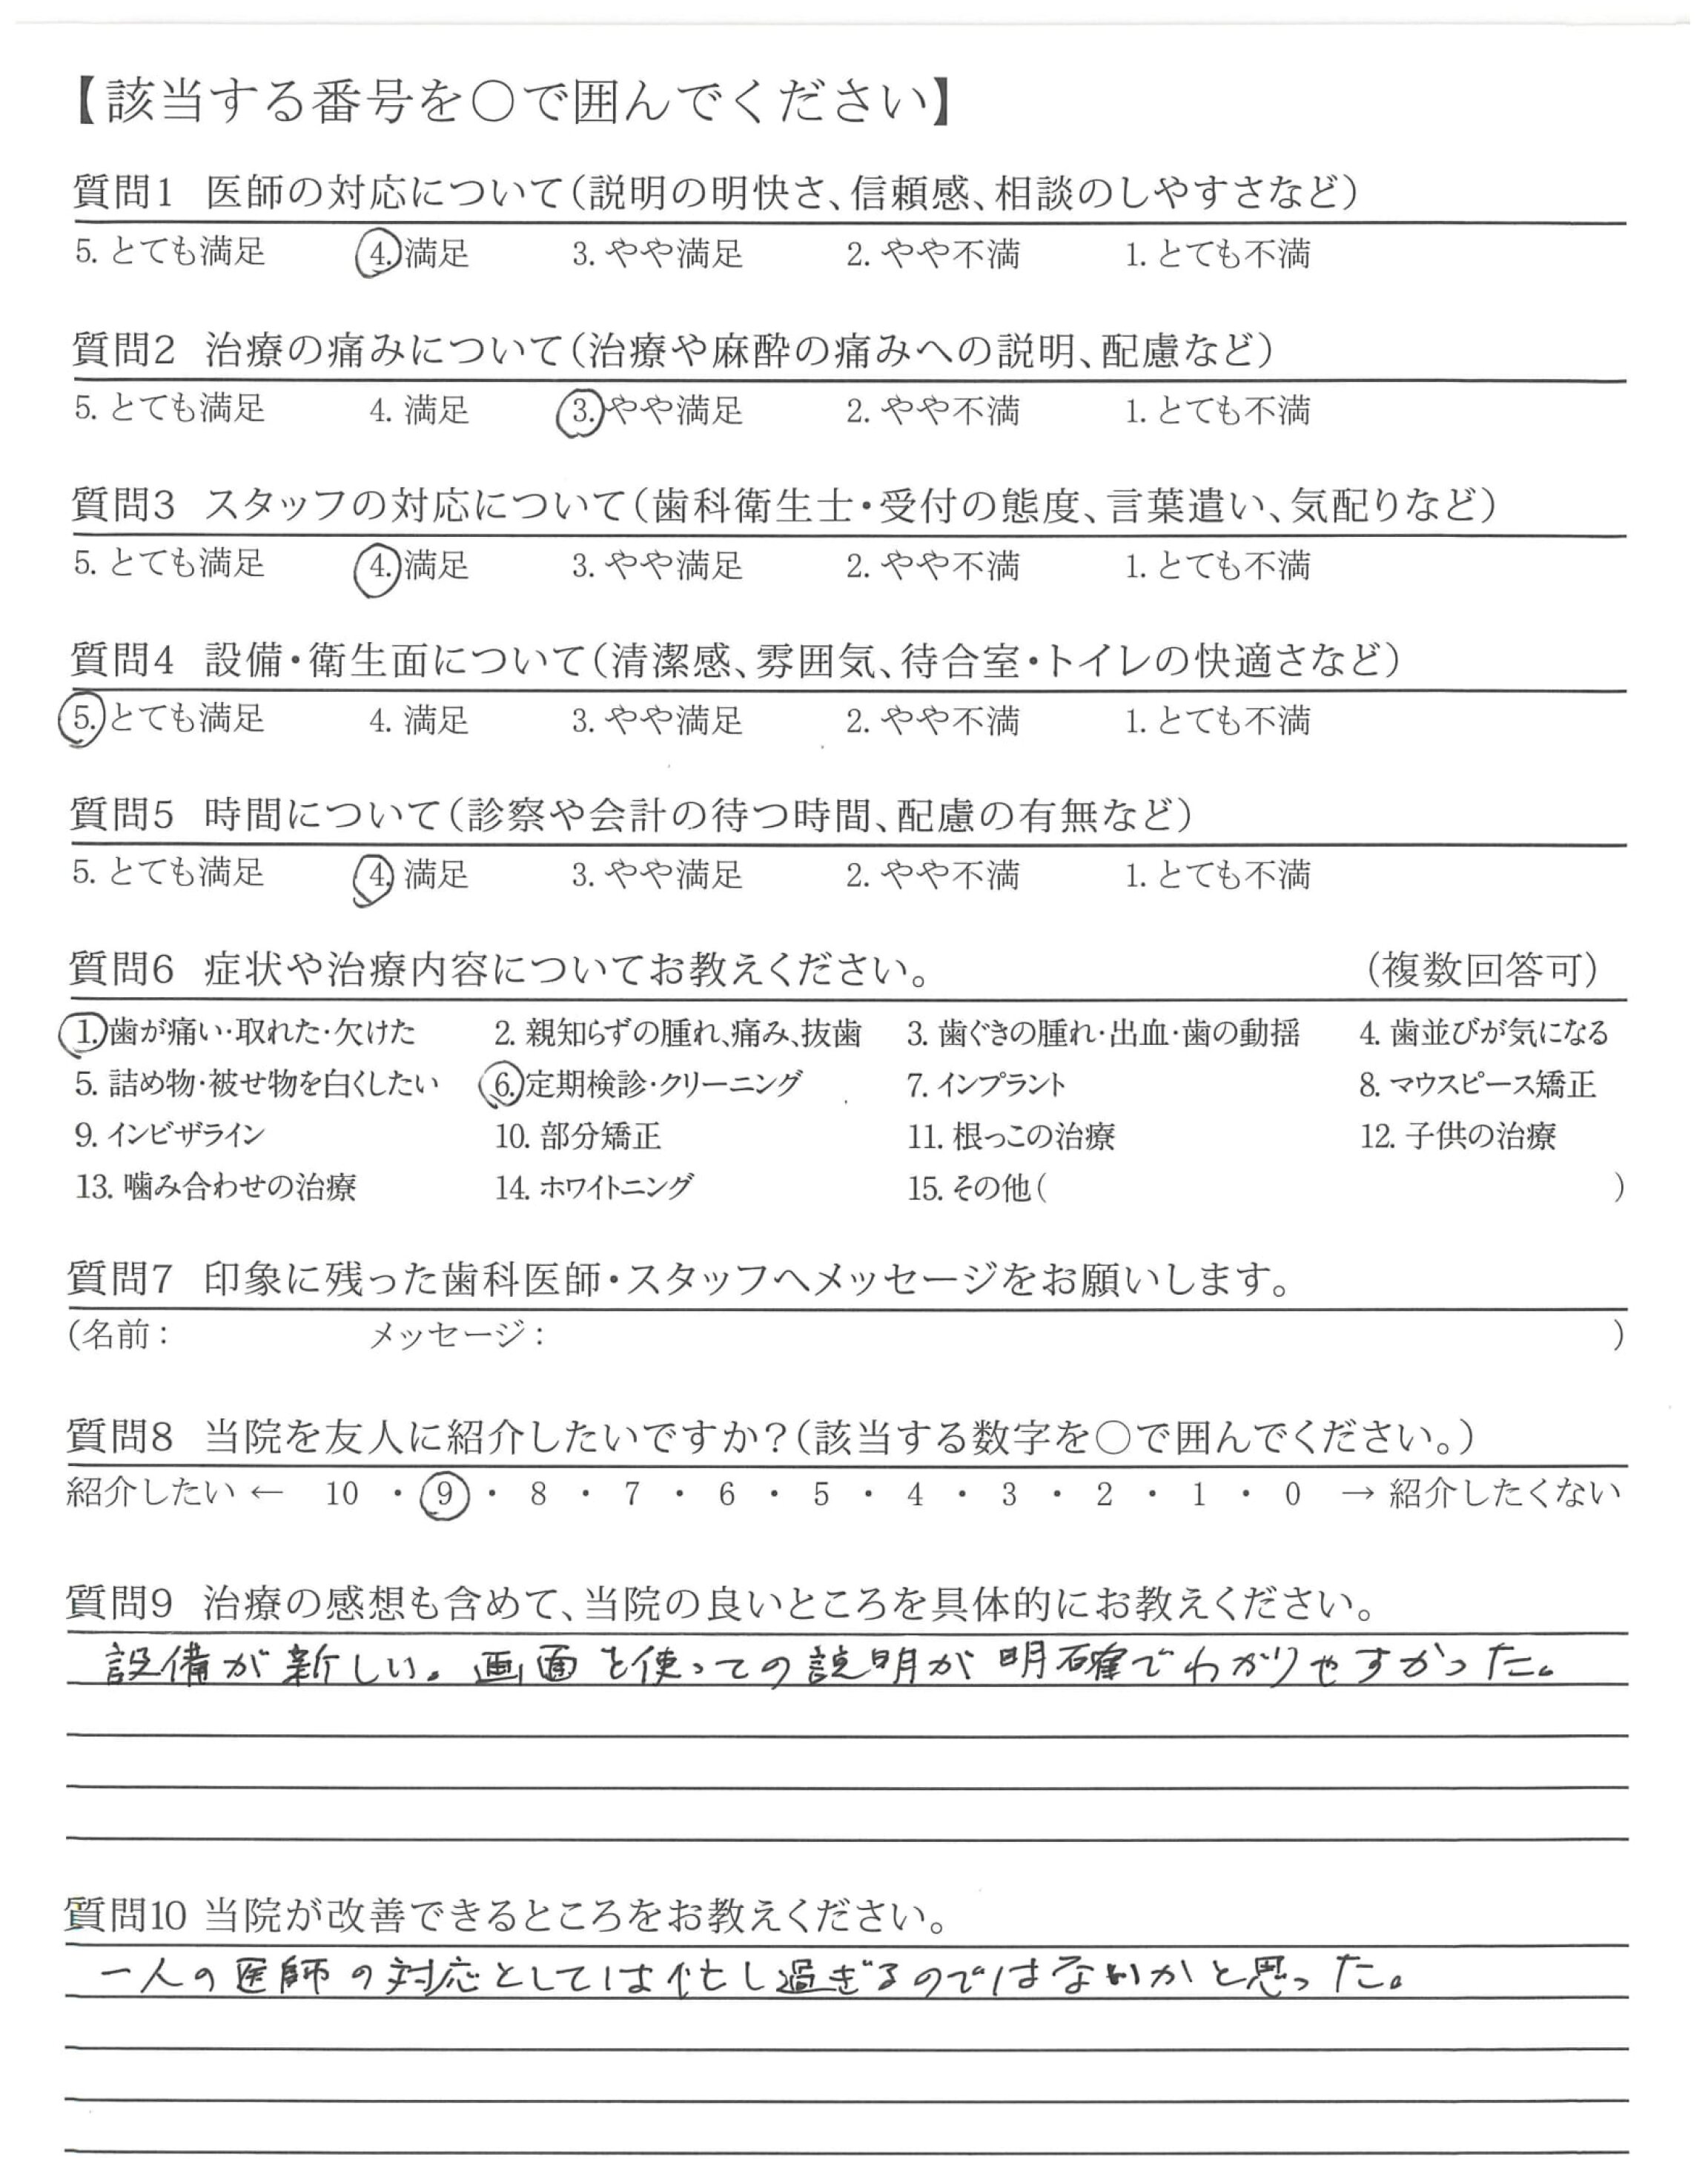 【該当する番号を〇で囲んでください】
質問1 医師の対応について(説明の明快さ、信頼感、相談のしやすさなど)
5. とても満足 4. 満足 3. やや満足 2. やや不満 1. とても不満
質問2 治療の痛みについて(治療や麻酔の痛みへの説明、配慮など)
5. とても満足 4. 満足 3. やや満足 2. やや不満 1. とても不満
質問3 スタッフの対応について(歯科衛生士・受付の態度、言葉遣い、気配りなど)
5. とても満足 4. 満足 3. やや満足 2. やや不満 1. とても不満
質問4 設備・衛生面について(清潔感、雰囲気、待合室・トイレの快適さなど)
5. とても満足 4. 満足 3. やや満足 2. やや不満 1. とても不満
質問5 時間について(診察や会計の待つ時間、配慮の有無など)
5. とても満足 4. 満足 3. やや満足 2. やや不満 1. とても不満
質問6 症状や治療内容についてお教えください。 (複数回答可)
1. 歯が痛い・取れた・欠けた 2. 親知らずの腫れ、痛み、抜歯 3. 歯ぐきの腫れ・出血・歯の動揺 4. 歯並びが気になる
5. 詰め物・被せ物を白くしたい 6. 定期検診・クリーニング 7. インプラント 8. マウスピース矯正
9. インビザライン 10. 部分矯正 11. 根っこの治療 12. 子供の治療
13. 噛み合わせの治療 14. ホワイトニング 15. その他( )
質問7 印象に残った歯科医師・スタッフへメッセージをお願いします。
(名前: メッセージ: )
質問8 当院を友人に紹介したいですか?(該当する数字を〇で囲んでください。)
紹介したい ← 10 ・ 9 ・ 8 ・ 7 ・ 6 ・ 5 ・ 4 ・ 3 ・ 2 ・ 1 ・ 0 → 紹介したくない
質問9 治療の感想も含めて、当院の良いところを具体的にお教えください。
設備が新しい。画面を使っての説明が明確でわかりやすかった。
質問10 当院が改善できるところをお教えください。
一人の医師の対応としては忙し過ぎるのではないかと思った。